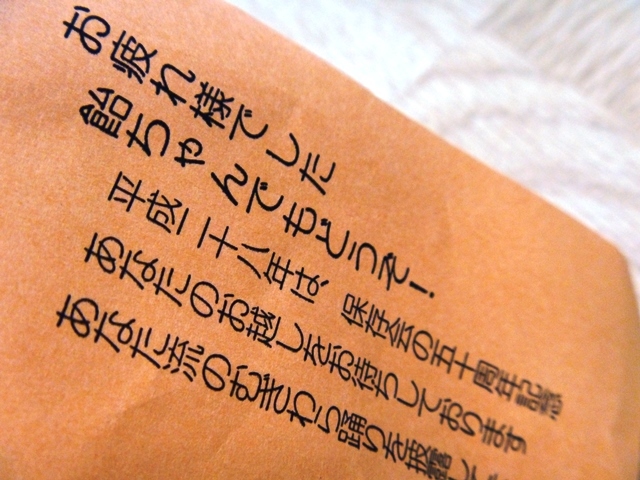 お疲れ様でした
飴ちゃんでもどうぞ！
平成二十八年は、保存会の五十周年記念
あなたのお越しをお待ちしております
あなた流のむぎわら踊りを披露し